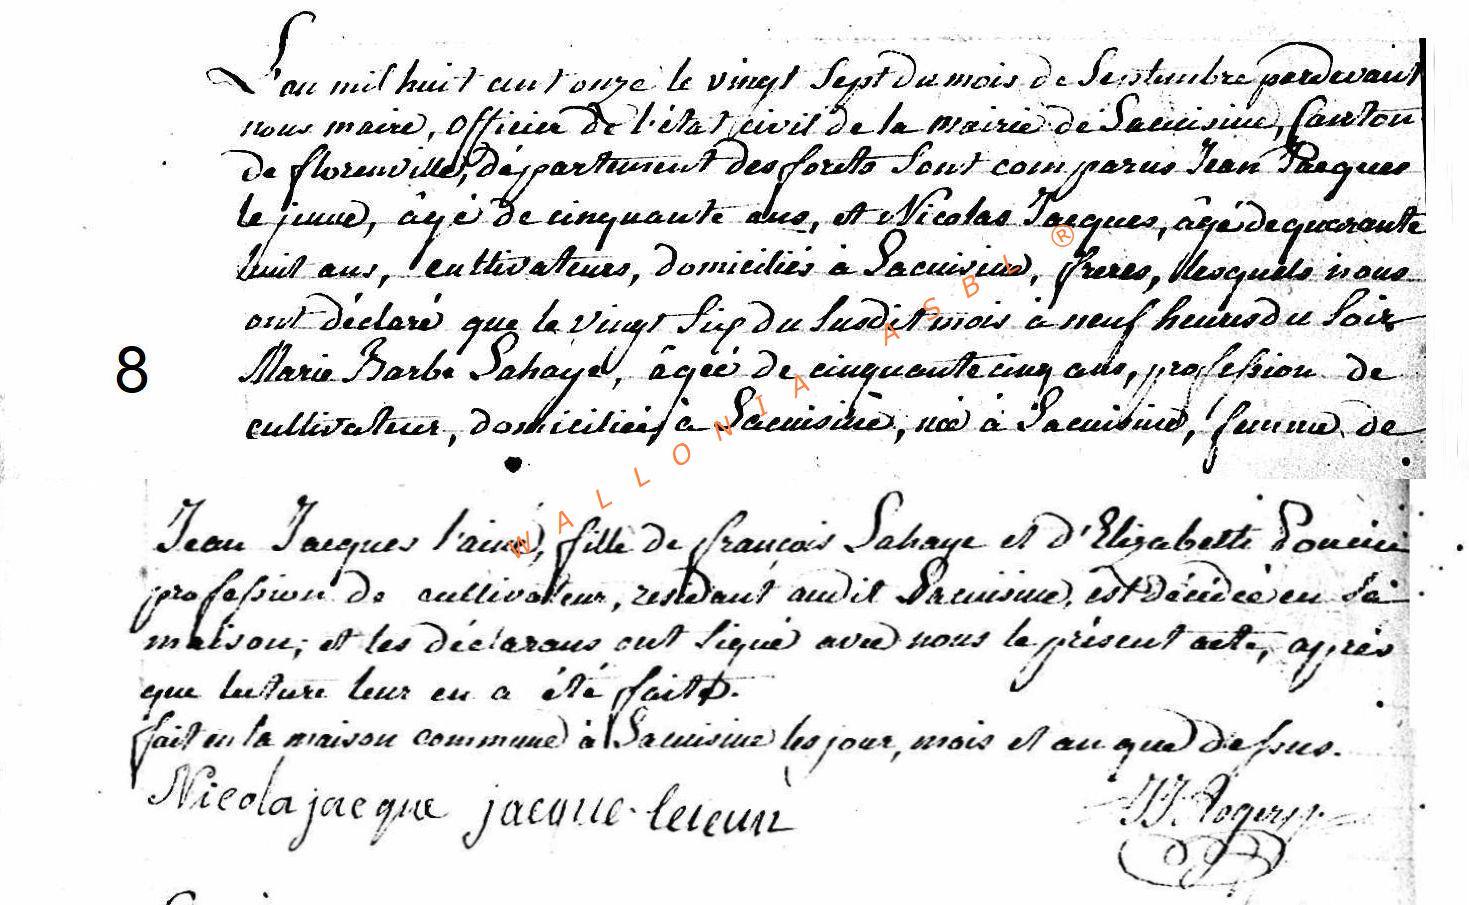 L'an mil huit cent onze le vingt Sept du mois de Septembre pardevant
nous maire, officier de l'état civil de la mairie de Lacuisine, Canton
de florenville, département des forets Sont comparus Jean Jacques
le jeune, âgé de cinquante ans, et Nicolas Jacques, âgé de quarante
huit ans, cultivateurs, domiciliés à Lacuisine, freres, lesquels nous
ont déclaré que le vingt Six du Susdit mois à neuf heures du Soir
8
Marie Barbe Lahaye, âgée de cinquante cinq ans, profession de
cultivateur, domiciliée à Lacuisine, née à Lacuisine, femme de
WALLONIA ASBL ®
Jean Jacques l'ainé, fille de françois Lahaye et d'Elizabeth
profession de cultivateur, residant audit Lacuisine, est décédée en Sa
maison; et les déclarans ont Signé avec nous le présent acte, après
que lecture leur en a été faite.
fait en la maison commune à Lacuisine les jour, mois et an que dessus.
Nicola jacque jacque leieun